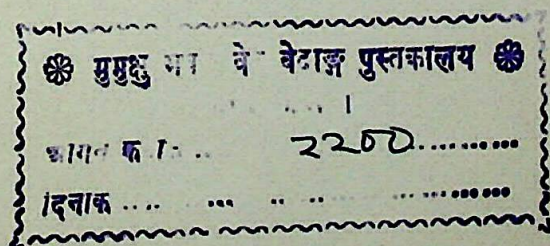 मुमुक्षु भव वे वेदाङ्ग पुस्तकालय
।
आगत क्र 2200
दिनाक